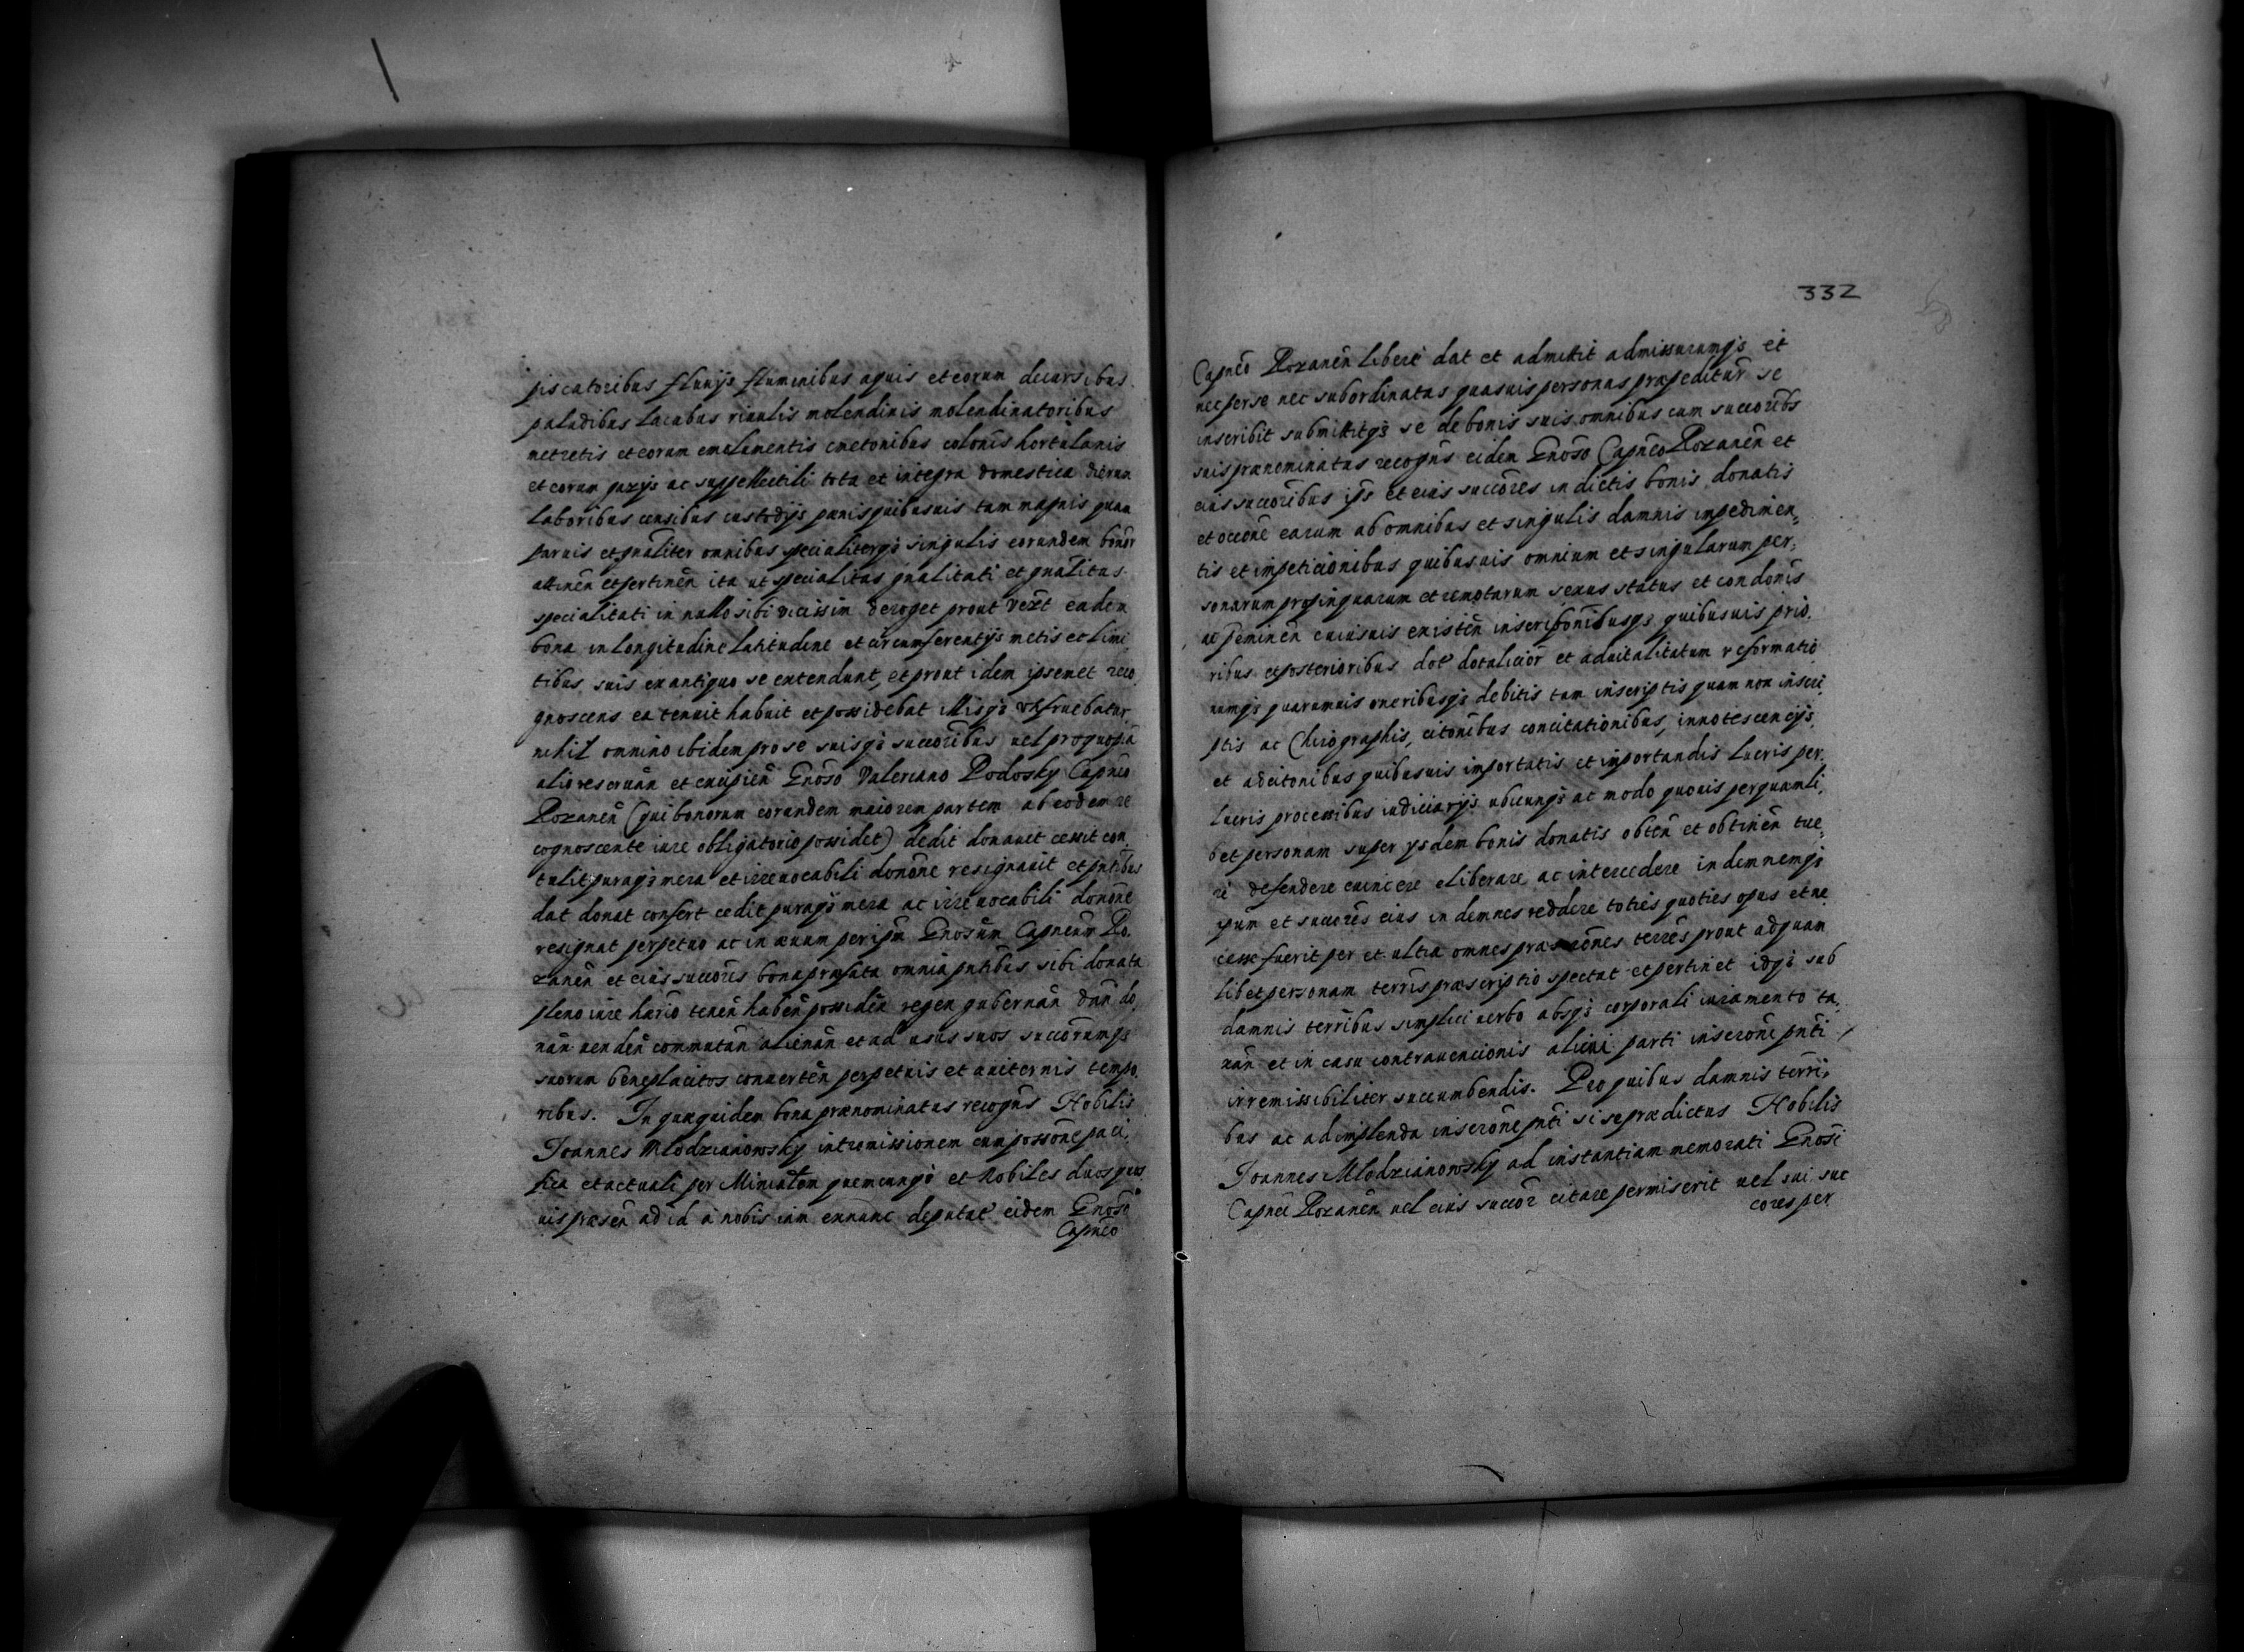 piscatoribus fluuijs fluminibus aquis et eorum decursibus
paludibus lacubus riuulis molendinis molendinatoribus
metretis et eorum emolumentis cmetonibus colonis hortulanis
et eorum gazys ac suppellectili tota et integra domestica dierum
laboribus censibus custodijs pœnis quibusuis tam magnis quam
paruis et gnãliter omnibus specialiterq3 singulis eorundem bonor
attinen̄ et pertinen̄ ita ut specialitas gnãlitati et gnãlitas
specialitati in nullo sibi vicissim deroget prout vext eadem
bona in longitudine latitudine et circumferentijs metis et limi
tibus suis ex antiquo se extendunt, et prout idem ipsemet reco
gnoscens ea tenuit habuit et possidebat illisq3 utifruebatur
nihil omnino ibidem pro se suisq3 succoribus uel pro quopiã
alio reseruan̄ et excipien̄ Gnoso Valeriano Podosky Capneo
Rozanen̄ (qui bonorum eorundem maiorem partem ab eodem re
cognoscente iure obligatorio possidet) dedit donauit cessit con
tulit puraq3 mera et irreuocabili donōne resignauit et pntibus
dat donat confert cedit puraq3 mera ac irreuocabili donōne
resignat perpetuo ac in æuum per ipm̄ Gnosum Capneum Ro
zanen̄ et eius succoris bona præfata omnia pntibus sibi donata
pleno iure hario tenen̄ haben̄ possiden̄ regen gubernan̄ dan̄ do
nan̄ venden̄ commutan̄ alienan̄ et ad usus suos succorumq3
suorum beneplacitos conuerten̄ perpetuis et æuiternis tempo
ribus. In quæquidem bona prænominatus recogns Nobilis
Joannes Mlodzianowsky intromissionem cum possōne paci
fica et actuali per Ministm̄ quemcunq3 et Nobiles duos quos
uis præsen̄ ad id a nobis iam exnunc deputat eidem Gnoso
Capneo
332
Capneo Rozanen̄ libere dat et admittit admissurumq3 et
nec per se nec subordinatas quasuis personas præpediturū se
inscribit submittitq3 se de bonis suis omnibus cum succoribs
suis prænominatus recogns eidem Gnoso Capneo Rozanen̄ et
eius succoribus ips et eius succores in dictis bonis donatis
et occōne earum ab omnibus et singulis damnis impedimen
tis et impeticionibus quibusuis omnium et singularum per
sonarum propinquarum et remotarum sexus status et condonis
ac eminen̄ cuiusuis existen̄ inscripōnibusq3 quibusuis prio
ribus et posterioribus dot dotalicior et aduitalitatum reformatio
numq3 quarumuis oneribusq3 debitis tam inscriptis quam non inscri
ptis ac Chirographis, citōnibus concitationibus, innotescencijs
et adcitonibus quibusuis importatis et importandis lucris per
lucris processibus iudiciarijs ubicunq3 ac modo quouis per quamli
bet personam super ijsdem bonis donatis obten̄ et obtinen̄ tue
ri defendere euincere eliberare ac intercedere indemnemq3
ipum et succores eius indemnes reddere toties quoties opus et ne
cesse fuerit per et ultra omnes præscrōnes terres prout ad quam
libet personam terris præscriptio spectat et pertinet idq3 sub
damnis terribus simplici uerbo absq3 corporali iuramento ta
xan̄ et in casu contrauencionis alicui parti inscrōni pnti
irremissibiliter succumbendis. Pro quibus damnis terri
bus ac adimplenda inscrōne pnti si se prædictus Nobilis
Joannes Mlodzianowsky ad instantiam memorati Gnosi
Capnei Rozanen̄ uel eius succor citare permiserit uel sui suc
cores per